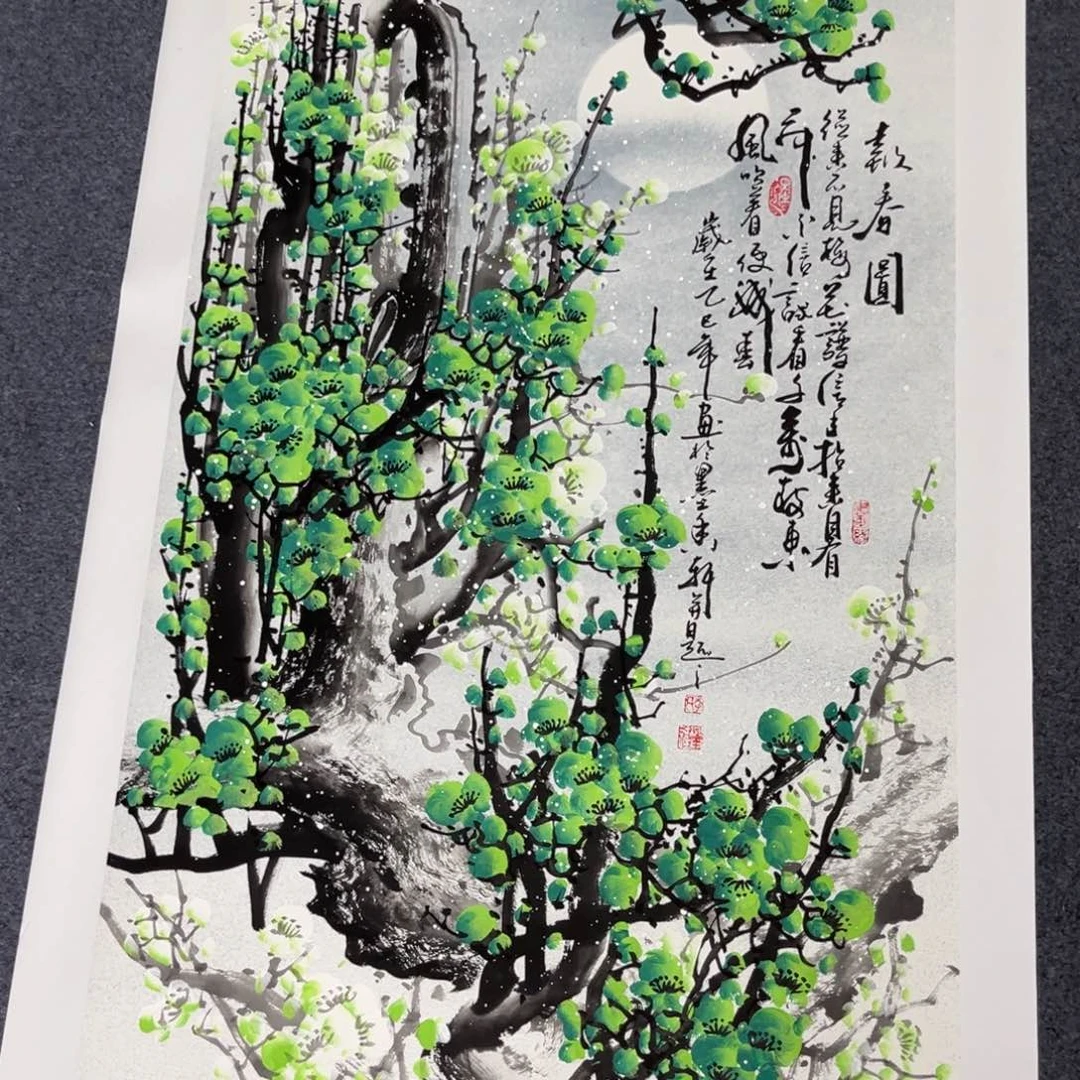 報春圖
從来不見梅花譜信手拈来自有
神不信試看千萬樹東
風吹着便成春
歲在乙巳年画於墨香軒并題之